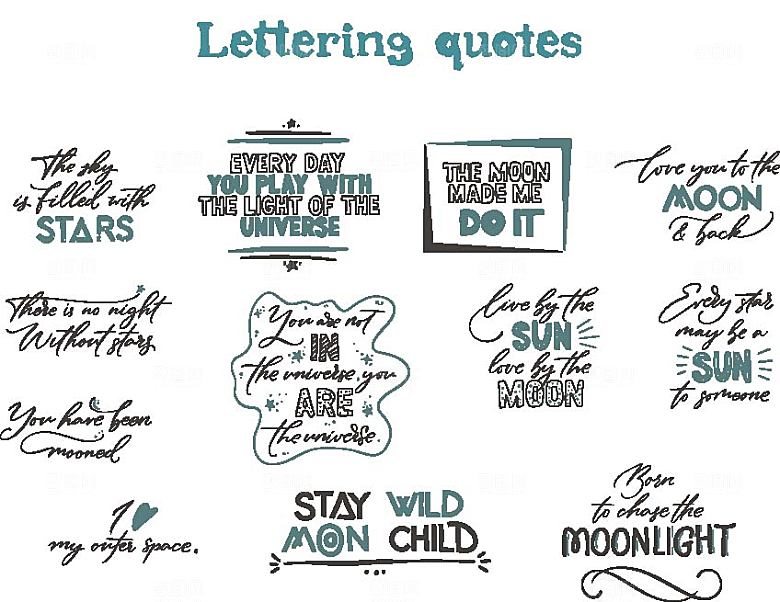 Lettering quotes
The sky
is filled with
STARS
EVERY DAY
YOU PLAY WITH
THE LIGHT OF THE
UNIVERSE
THE MOON
MADE ME
DO IT
love you to the
MOON
& back
There is no night
Without stars
You are not
IN
the universe, you
ARE
the universe.
live by the
SUN
love by the
MOON
Every star
may be a
SUN
to someone
You have been
mooned
I
my outer space.
STAY WILD
MOON CHILD
Born
to chase the
MOONLIGHT